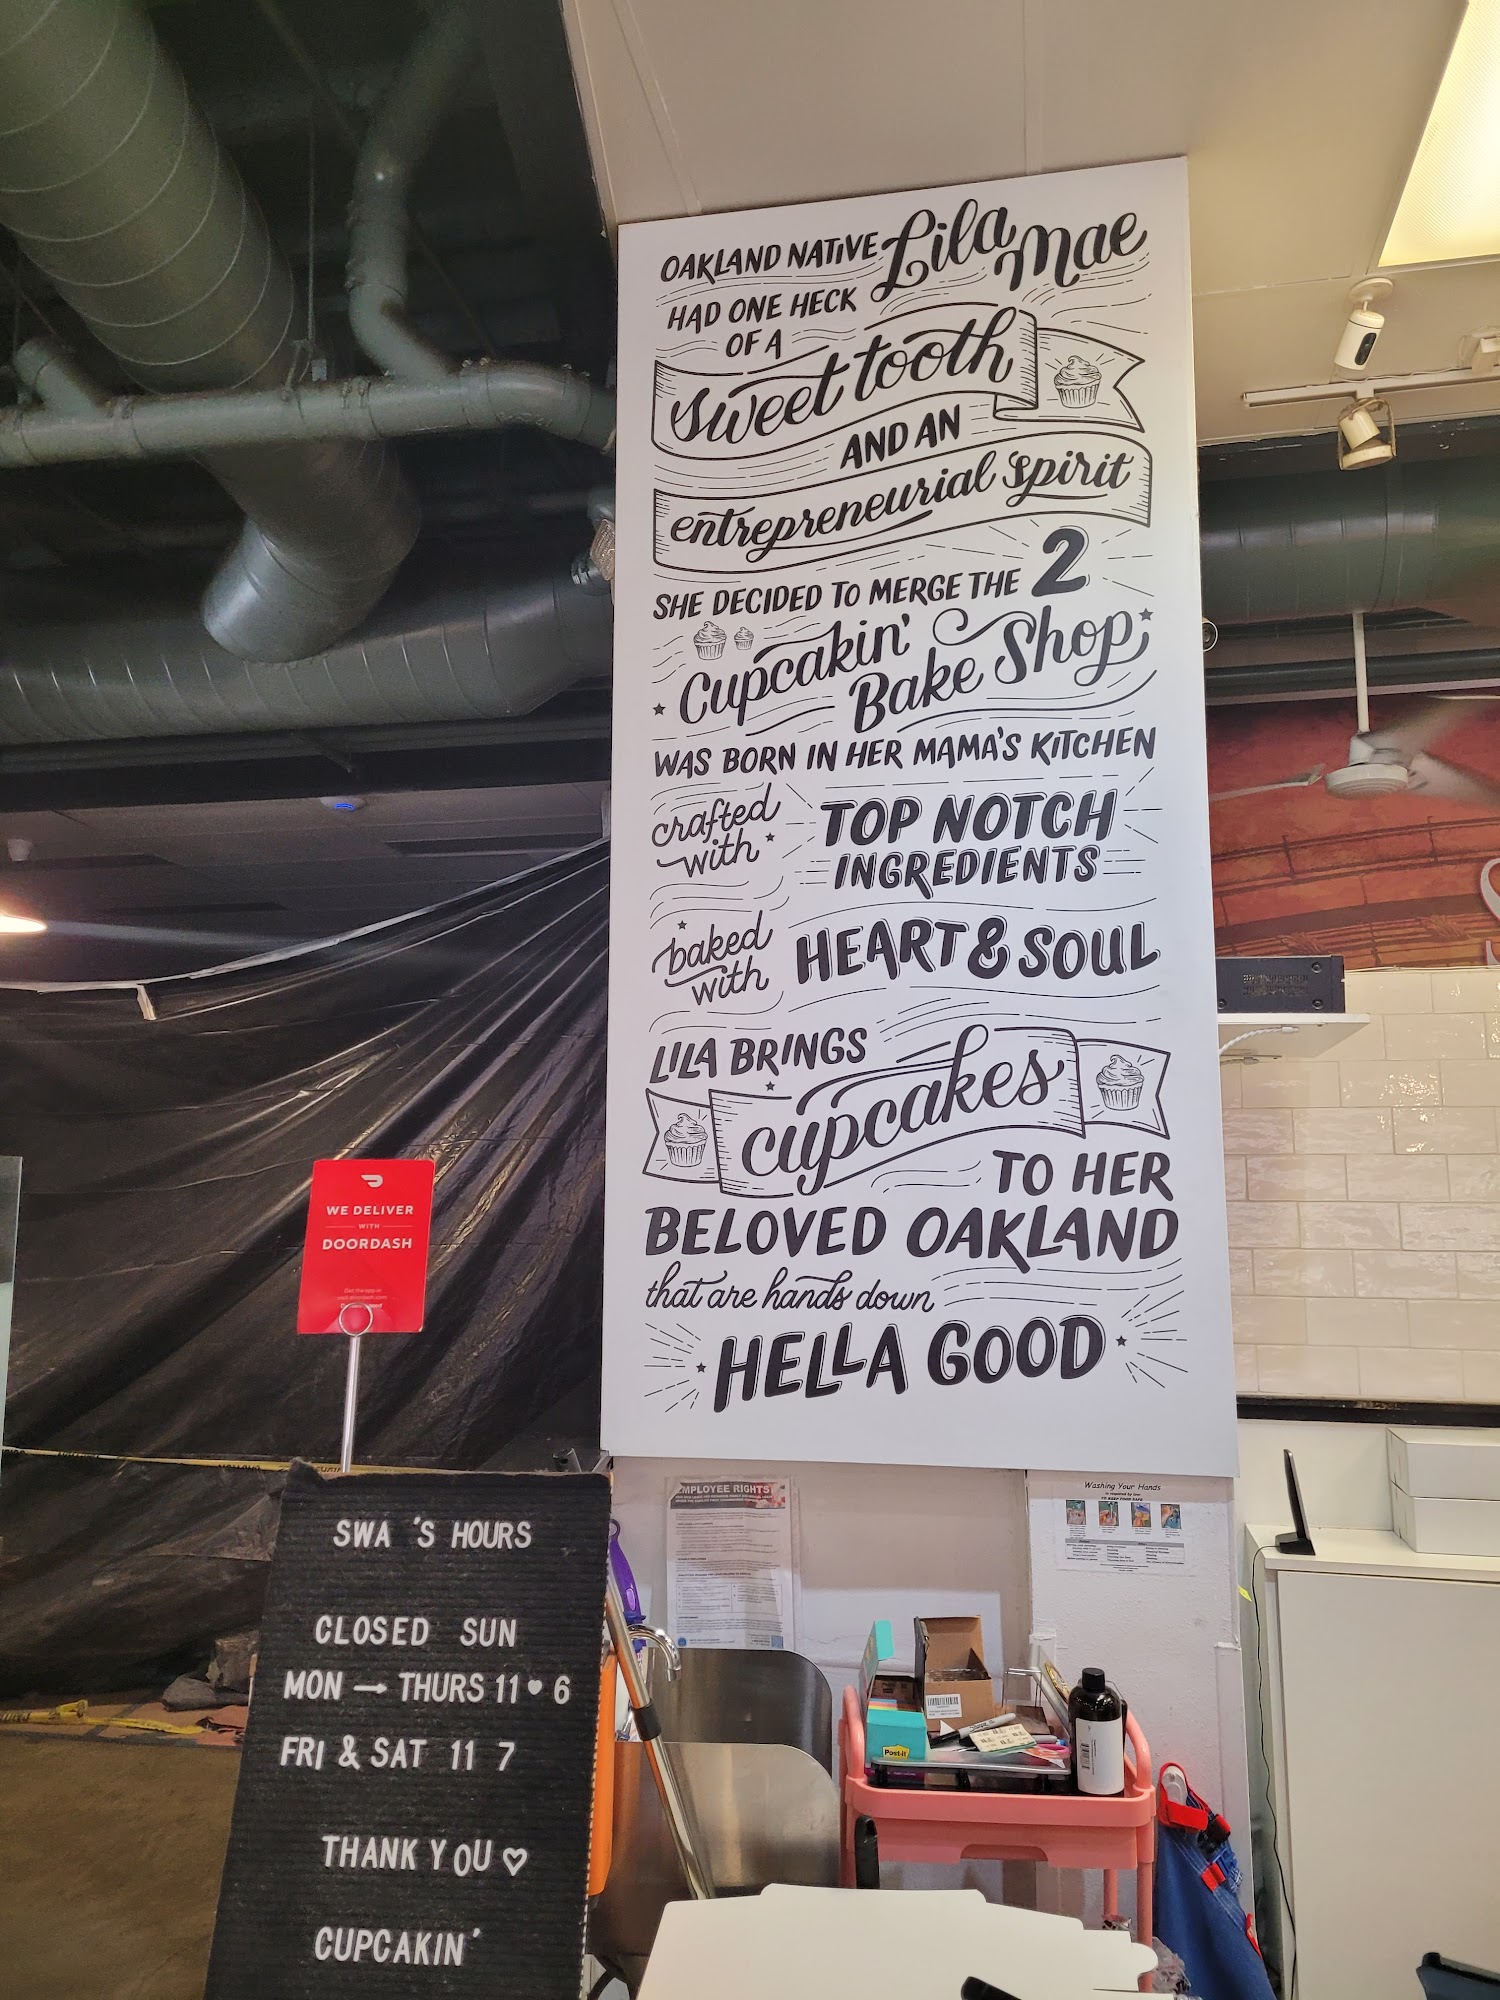 OAKLAND NATIVE Lila Mae
HAD ONE HECK
OF A
sweet tooth
AND AN
entrepreneurial spirit
SHE DECIDED TO MERGE THE 2
Cupcakin'
Bake Shop
WAS BORN IN HER MAMA'S KITCHEN
crafted
with
TOP NOTCH
INGREDIENTS
baked
with
HEART & SOUL
LILA BRINGS
cupcakes
TO HER
BELOVED OAKLAND
that are hands down
HELLA GOOD
WE DELIVER
WITH
DOORDASH
SWA 'S HOURS
CLOSED SUN
MON → THURS 11 ♥ 6
FRI & SAT 11 7
THANK YOU ♡
CUPCAKIN'
EMPLOYEE RIGHTS
Washing Your Hands
Post-it
Sharpie